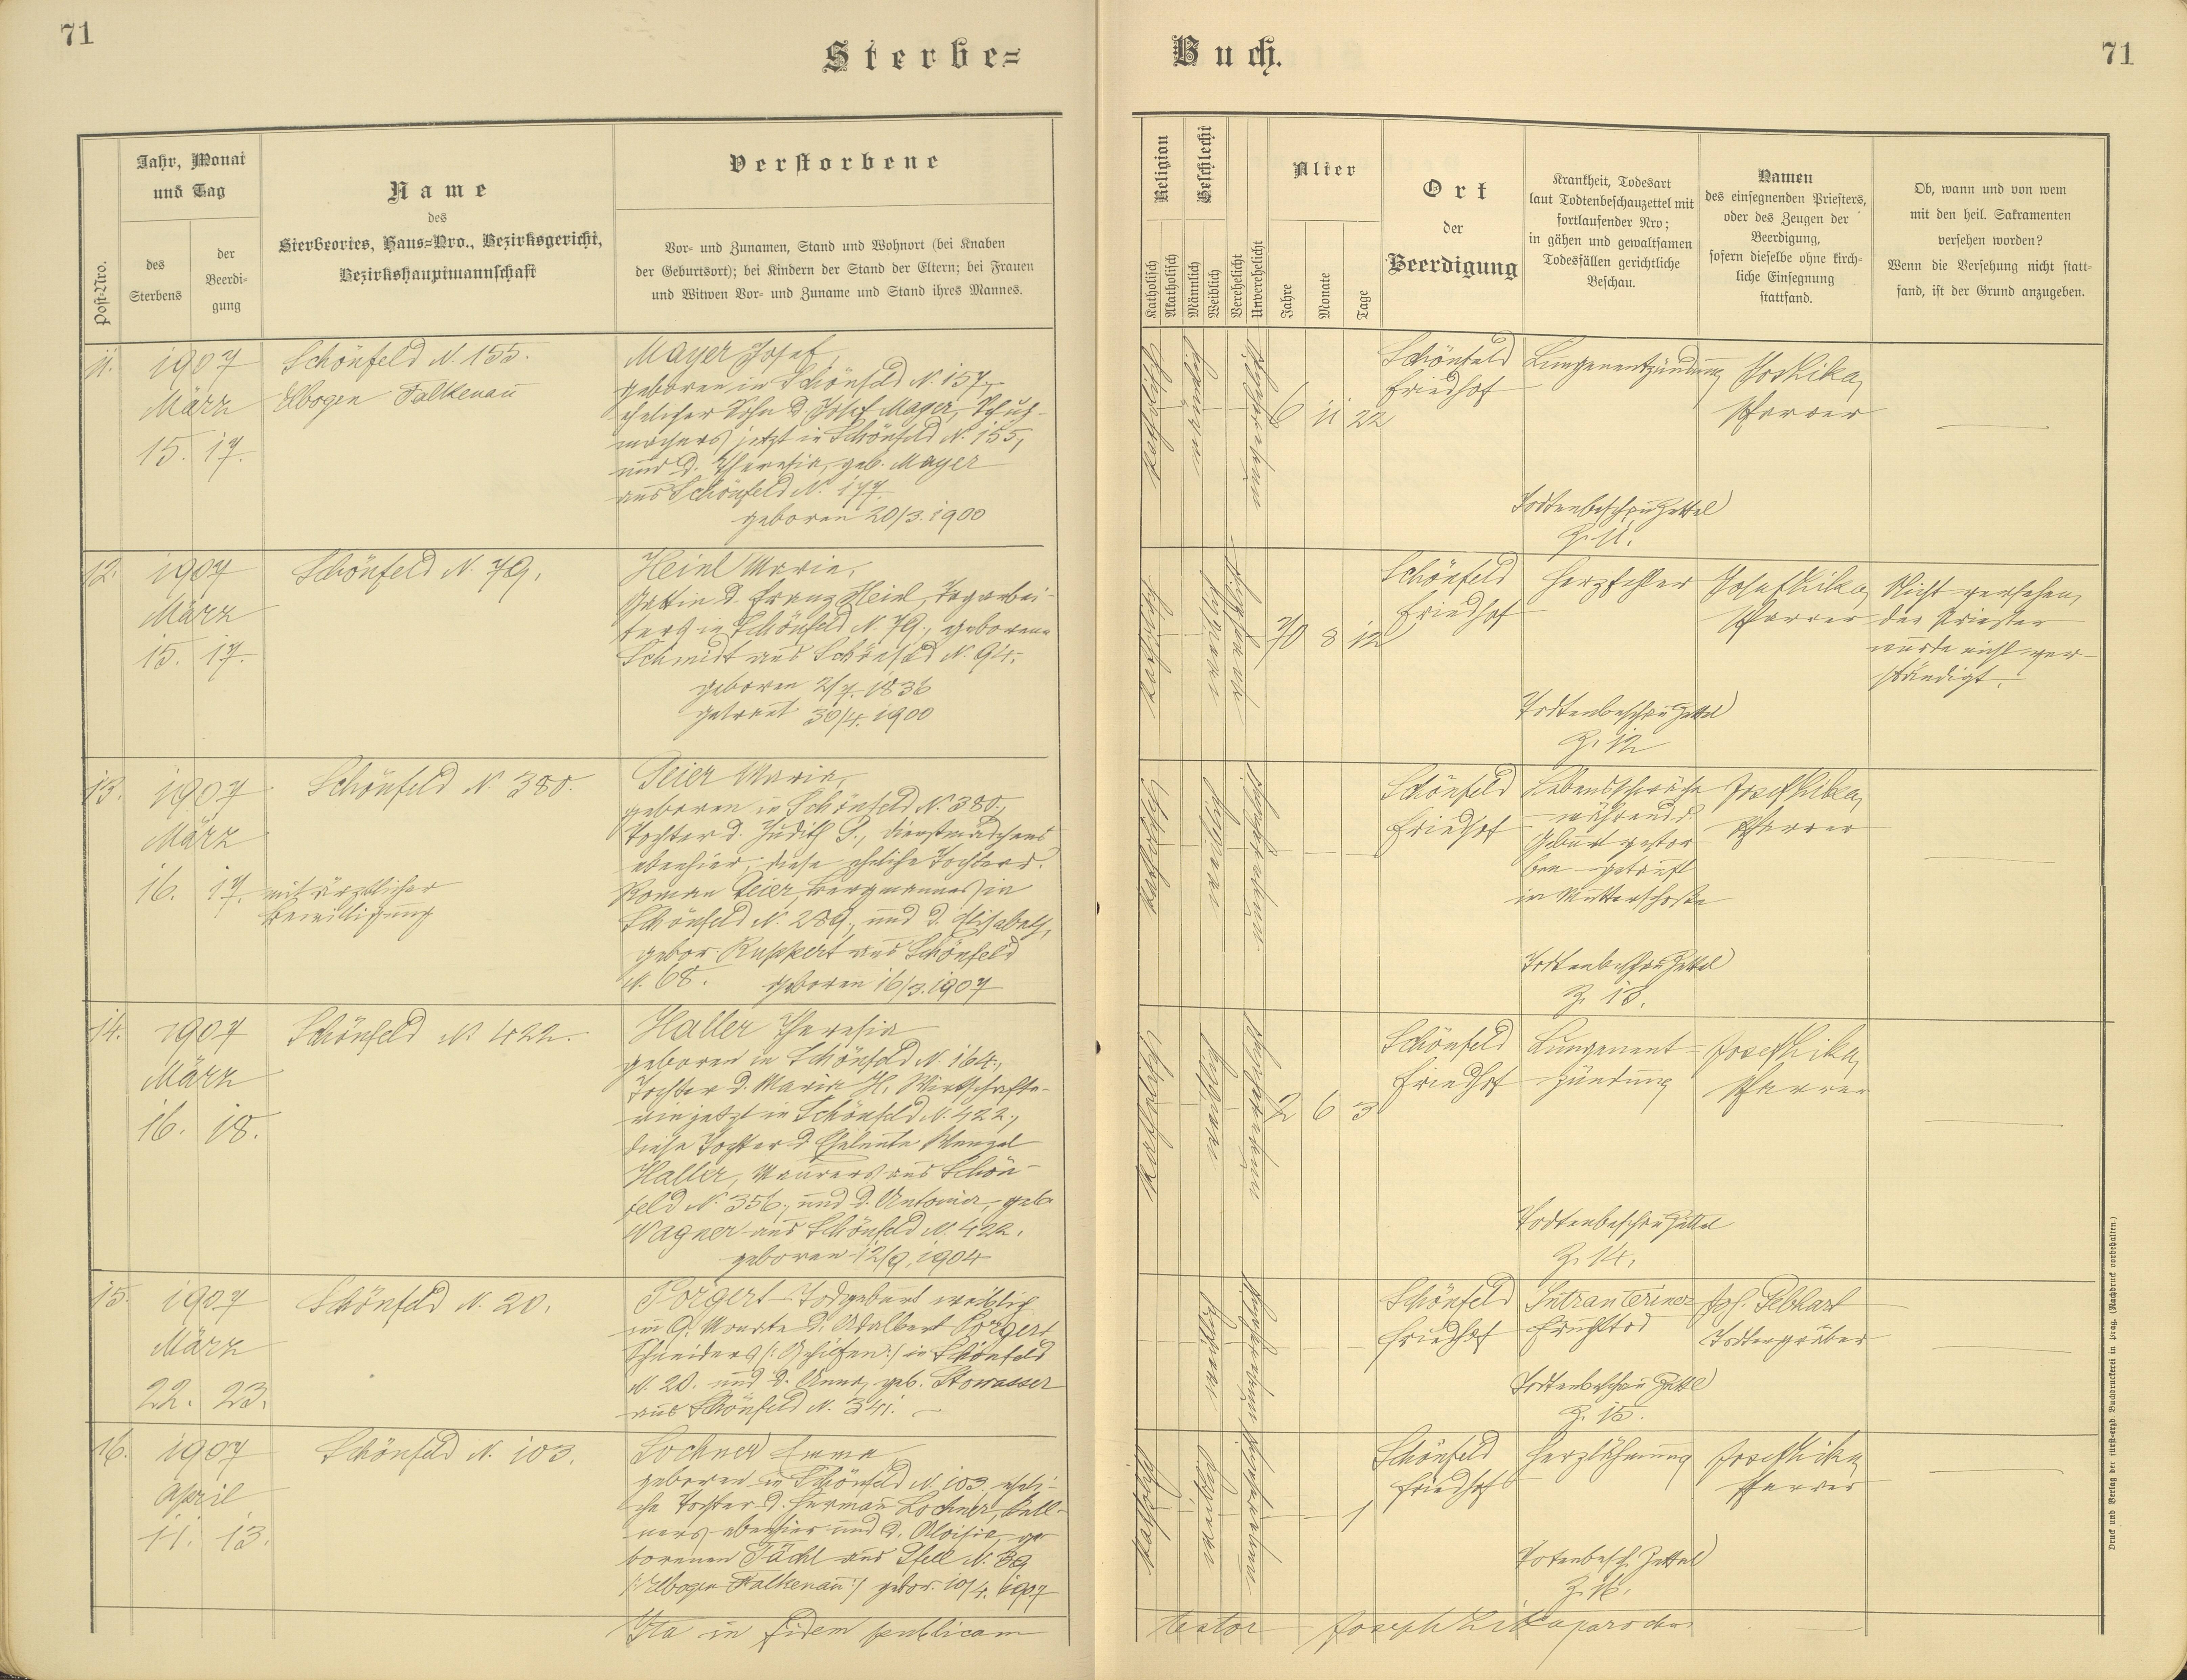 71
Sterbe=
Buch.
71
Post=Nro.
Jahr, Monat
und Tag
des
Sterbens
der
Beerdi-
gung
Name
des
Sterbeortes, Haus=Nro., Bezirksgericht,
Bezirkshauptmannschaft
Verstorbene
Vor- und Zunamen, Stand und Wohnort (bei Knaben
der Geburtsort); bei Kindern der Stand der Eltern; bei Frauen
und Witwen Vor- und Zuname und Stand ihres Mannes.
Religion
Katholisch
Akatholisch
Geschlecht
Männlich
Weiblich
Verehelicht
Unverehelicht
Alter
Jahre
Monate
Tage
Ort
der
Beerdigung
Krankheit, Todesart
laut Todtenbeschauzettel mit
fortlaufender Nro;
in gähen und gewaltsamen
Todesfällen gerichtliche
Beschau.
Namen
des einsegnenden Priesters,
oder des Zeugen der
Beerdigung,
sofern dieselbe ohne kirch-
liche Einsegnung
stattfand.
Ob, wann und von wem
mit den heil. Sakramenten
versehen worden?
Wenn die Versehung nicht statt-
fand, ist der Grund anzugeben.
11.
1907
März
15. 17.
Schönfeld N. 155.
Elbogen Falkenau
Mayer Josef,
geboren in Schönfeld N. 157,
ehelicher Sohn d. Josef Mayer, Schuh-
machers jetzt in Schönfeld N. 155,
und d. Theresia, geb. Mayer
aus Schönfeld N. 177.
geboren 20/3. 1900
katholisch
männlich
unverehelicht
6 11 22
Schönfeld
Friedhof
Lungenentzündung
Todtenbeschau Zettel
Z. 11.
Jos Kika,
Pfarrer
12.
1907
März
15. 17.
Schönfeld N. 79.
Heinl Marie,
Gattin d. Franz Heinl, Tagarbei-
ters in Schönfeld N. 79., geborene
Schmidt aus Schönfeld N. 94.
geboren 2/7. 1836
getraut 30/4. 1900
katholisch
weiblich
verehelicht
70 8 12
Schönfeld
Friedhof
Herzfehler
Todtenbeschau Zettel
Z. 12
Josef Kika,
Pfarrer
Nicht versehen,
der Priester
wurde nicht ver-
ständigt.
13.
1907
März
16. 17. mit ärztlicher
Bewilligung
Schönfeld N. 380.
Peier Maria,
geboren in Schönfeld N. 380.,
Tochter d. Judith P., Dienstmädchens
ebenhier, diese eheliche Tochter d.
Roman Peier, Bergmannes in
Schönfeld N. 289., und d. Elisabeth,
gebor. Ruppert aus Schönfeld
N. 68. geboren 16/3. 1907
katholisch
weiblich
unverehelicht
Schönfeld
Friedhof
Lebensschwäche
während d.
Geburt gestor
ben getauft
im Mutterschoße
Todtenbeschau Zettel
Z. 13.
Josef Kika,
Pfarrer
14.
1907
März
16. 18.
Schönfeld N. 422.
Haller Theresia
geboren in Schönfeld N. 164.,
Tochter d. Maria H., Wirtschafte-
rin jetzt in Schönfeld N. 422.,
diese Tochter d. Eheleute Wenzel
Haller, Maurers aus Schön-
feld N. 356., und d. Antonia, geb.
Wagner aus Schönfeld N. 422.
geboren 12/9. 1904
katholisch
weiblich
unverehelicht
2 6 3
Schönfeld
Friedhof
Lungenent-
zündung
Todtenbeschau Zettel
Z. 14.
Josef Kika,
Pfarrer
15.
1907
März
22. 23.
Schönfeld N. 20.
Porgert Todgeburt weiblich
im 9. Monate d. Adalbert Porgert
Schneiders /:Gehilfen:/ in Schönfeld
N. 20. und d. Anna, geb. Stowasser
aus Schönfeld N. 341.
weiblich
unverehelicht
Schönfeld
Friedhof
Intrauteriner
Fruchttod
Todtenbeschau Zettel
Z. 15.
Joh. Gebhart
Todtengräber
16.
1907
April
11. 13.
Schönfeld N. 103.
Lochner Emma,
geboren in Schönfeld N. 103, eheli-
che Tochter d. Herman Lochner, Kell-
ners ebenhier und d. Aloisia, ge
borenen Pächl aus N. 39
/:Elbogen Falkenau:/ gebor. 10/4. 1907
katholisch
weiblich
unverehelicht
1
Schönfeld
Friedhof
Herzlähmung
Todtenbesch. Zettel
Z. 16.
Josef Kika
Pfarrer
Ita in fidem publicam
testor Joseph Kika parochus
Druck und Verlag der fürst-erzb. Buchdruckerei in Prag. (Nachdruck vorbehalten.)